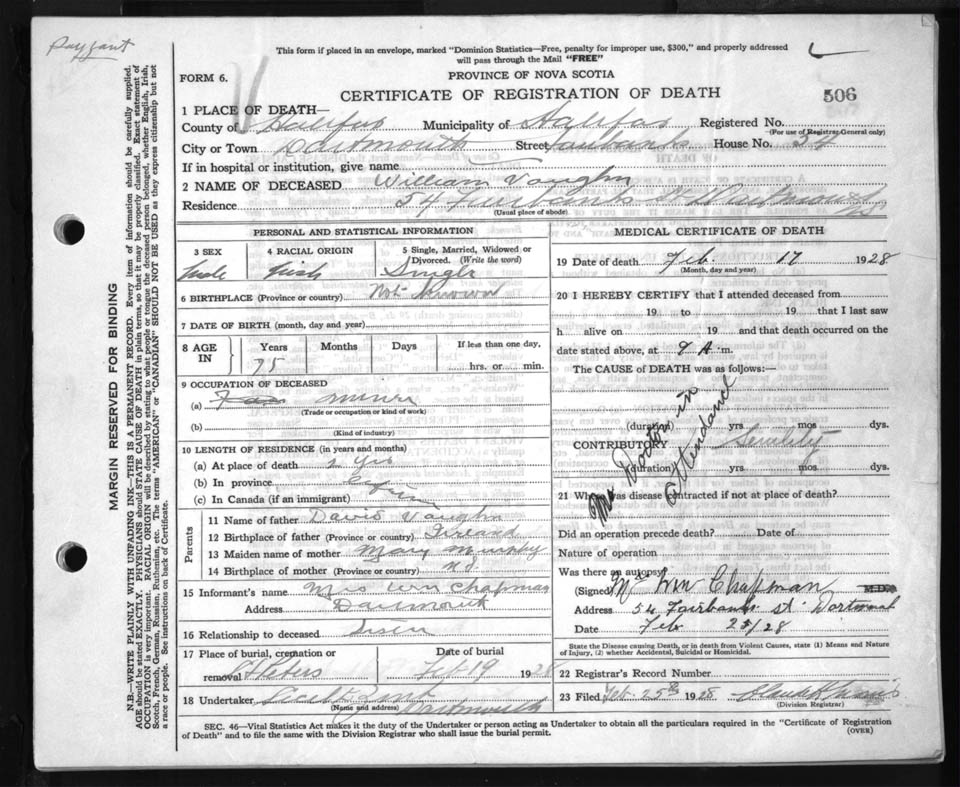 Payzant
This form if placed in an envelope, marked "Dominion Statistics—Free, penalty for improper use, $300," and properly addressed
will pass through the Mail "FREE"
FORM 6.
PROVINCE OF NOVA SCOTIA
CERTIFICATE OF REGISTRATION OF DEATH
506
1 PLACE OF DEATH—
County of Halifax Municipality of Halifax Registered No.
(For use of Registrar General only)
City or Town Dartmouth Street Fairbanks House No. 54
If in hospital or institution, give name
2 NAME OF DECEASED William Vaughn
Residence 54 Fairbanks St Dartmouth
(Usual place of abode)
PERSONAL AND STATISTICAL INFORMATION
3 SEX 4 RACIAL ORIGIN 5 Single, Married, Widowed or Divorced. (Write the word)
Male Irish Single
6 BIRTHPLACE (Province or country) Not Known
7 DATE OF BIRTH (month, day and year)
8 AGE IN Years Months Days If less than one day,
75 hrs. or min.
9 OCCUPATION OF DECEASED
(a) Miner
(Trade or occupation or kind of work)
(b)
(Kind of industry)
10 LENGTH OF RESIDENCE (in years and months)
(a) At place of death 2 yrs
(b) In province
(c) In Canada (if an immigrant)
Parents
11 Name of father David Vaughn
12 Birthplace of father (Province or country) Ireland
13 Maiden name of mother Mary Murphy
14 Birthplace of mother (Province or country) N.S.
15 Informant's name Mrs Wm Chapman
Address Dartmouth
16 Relationship to deceased Sister
17 Place of burial, cremation or Date of burial
removal St Peters Feb 19 1928
18 Undertaker Dartmouth
(Name and address)
MEDICAL CERTIFICATE OF DEATH
19 Date of death Feb. 17 1928
(Month, day and year)
20 I HEREBY CERTIFY that I attended deceased from
19 to 19 that I last saw
h alive on 19 and that death occurred on the
date stated above, at 9 A.m.
The CAUSE of DEATH was as follows:—
No Doctor in attendance
(duration) yrs mos dys.
CONTRIBUTORY Senility
(duration) yrs mos dys.
21 Where was disease contracted if not at place of death?
Did an operation precede death? Date of
Nature of operation
Was there an autopsy
(Signed) Mr Wm Chapman M.D.
Address 54 Fairbanks St. Dartmouth
Date Feb 25/28
State the Disease causing Death, or in death from Violent Causes, state (1) Means and Nature
of Injury, (2) whether Accidental, Suicidal or Homicidal.
22 Registrar's Record Number
23 Filed Feb. 25th 1928
(Division Registrar)
SEC. 46—Vital Statistics Act makes it the duty of the Undertaker or person acting as Undertaker to obtain all the particulars required in the "Certificate of Registration
of Death" and to file the same with the Division Registrar who shall issue the burial permit.
(OVER)
MARGIN RESERVED FOR BINDING
N.B.—WRITE PLAINLY WITH UNFADING INK—THIS IS A PERMANENT RECORD. Every item of information should be carefully supplied.
AGE should be stated EXACTLY. PHYSICIANS should STATE CAUSE OF DEATH in plain terms, so that it may be properly classified. Exact statement of
OCCUPATION is very important. RACIAL ORIGIN will be described by stating to what people or tongue the deceased person belonged, whether English, Irish,
Scotch, French, German, Russian, Ruthenian, etc. The terms "AMERICAN" or "CANADIAN" SHOULD NOT BE USED as they express citizenship but not
a race or people. See instructions on back of Certificate.